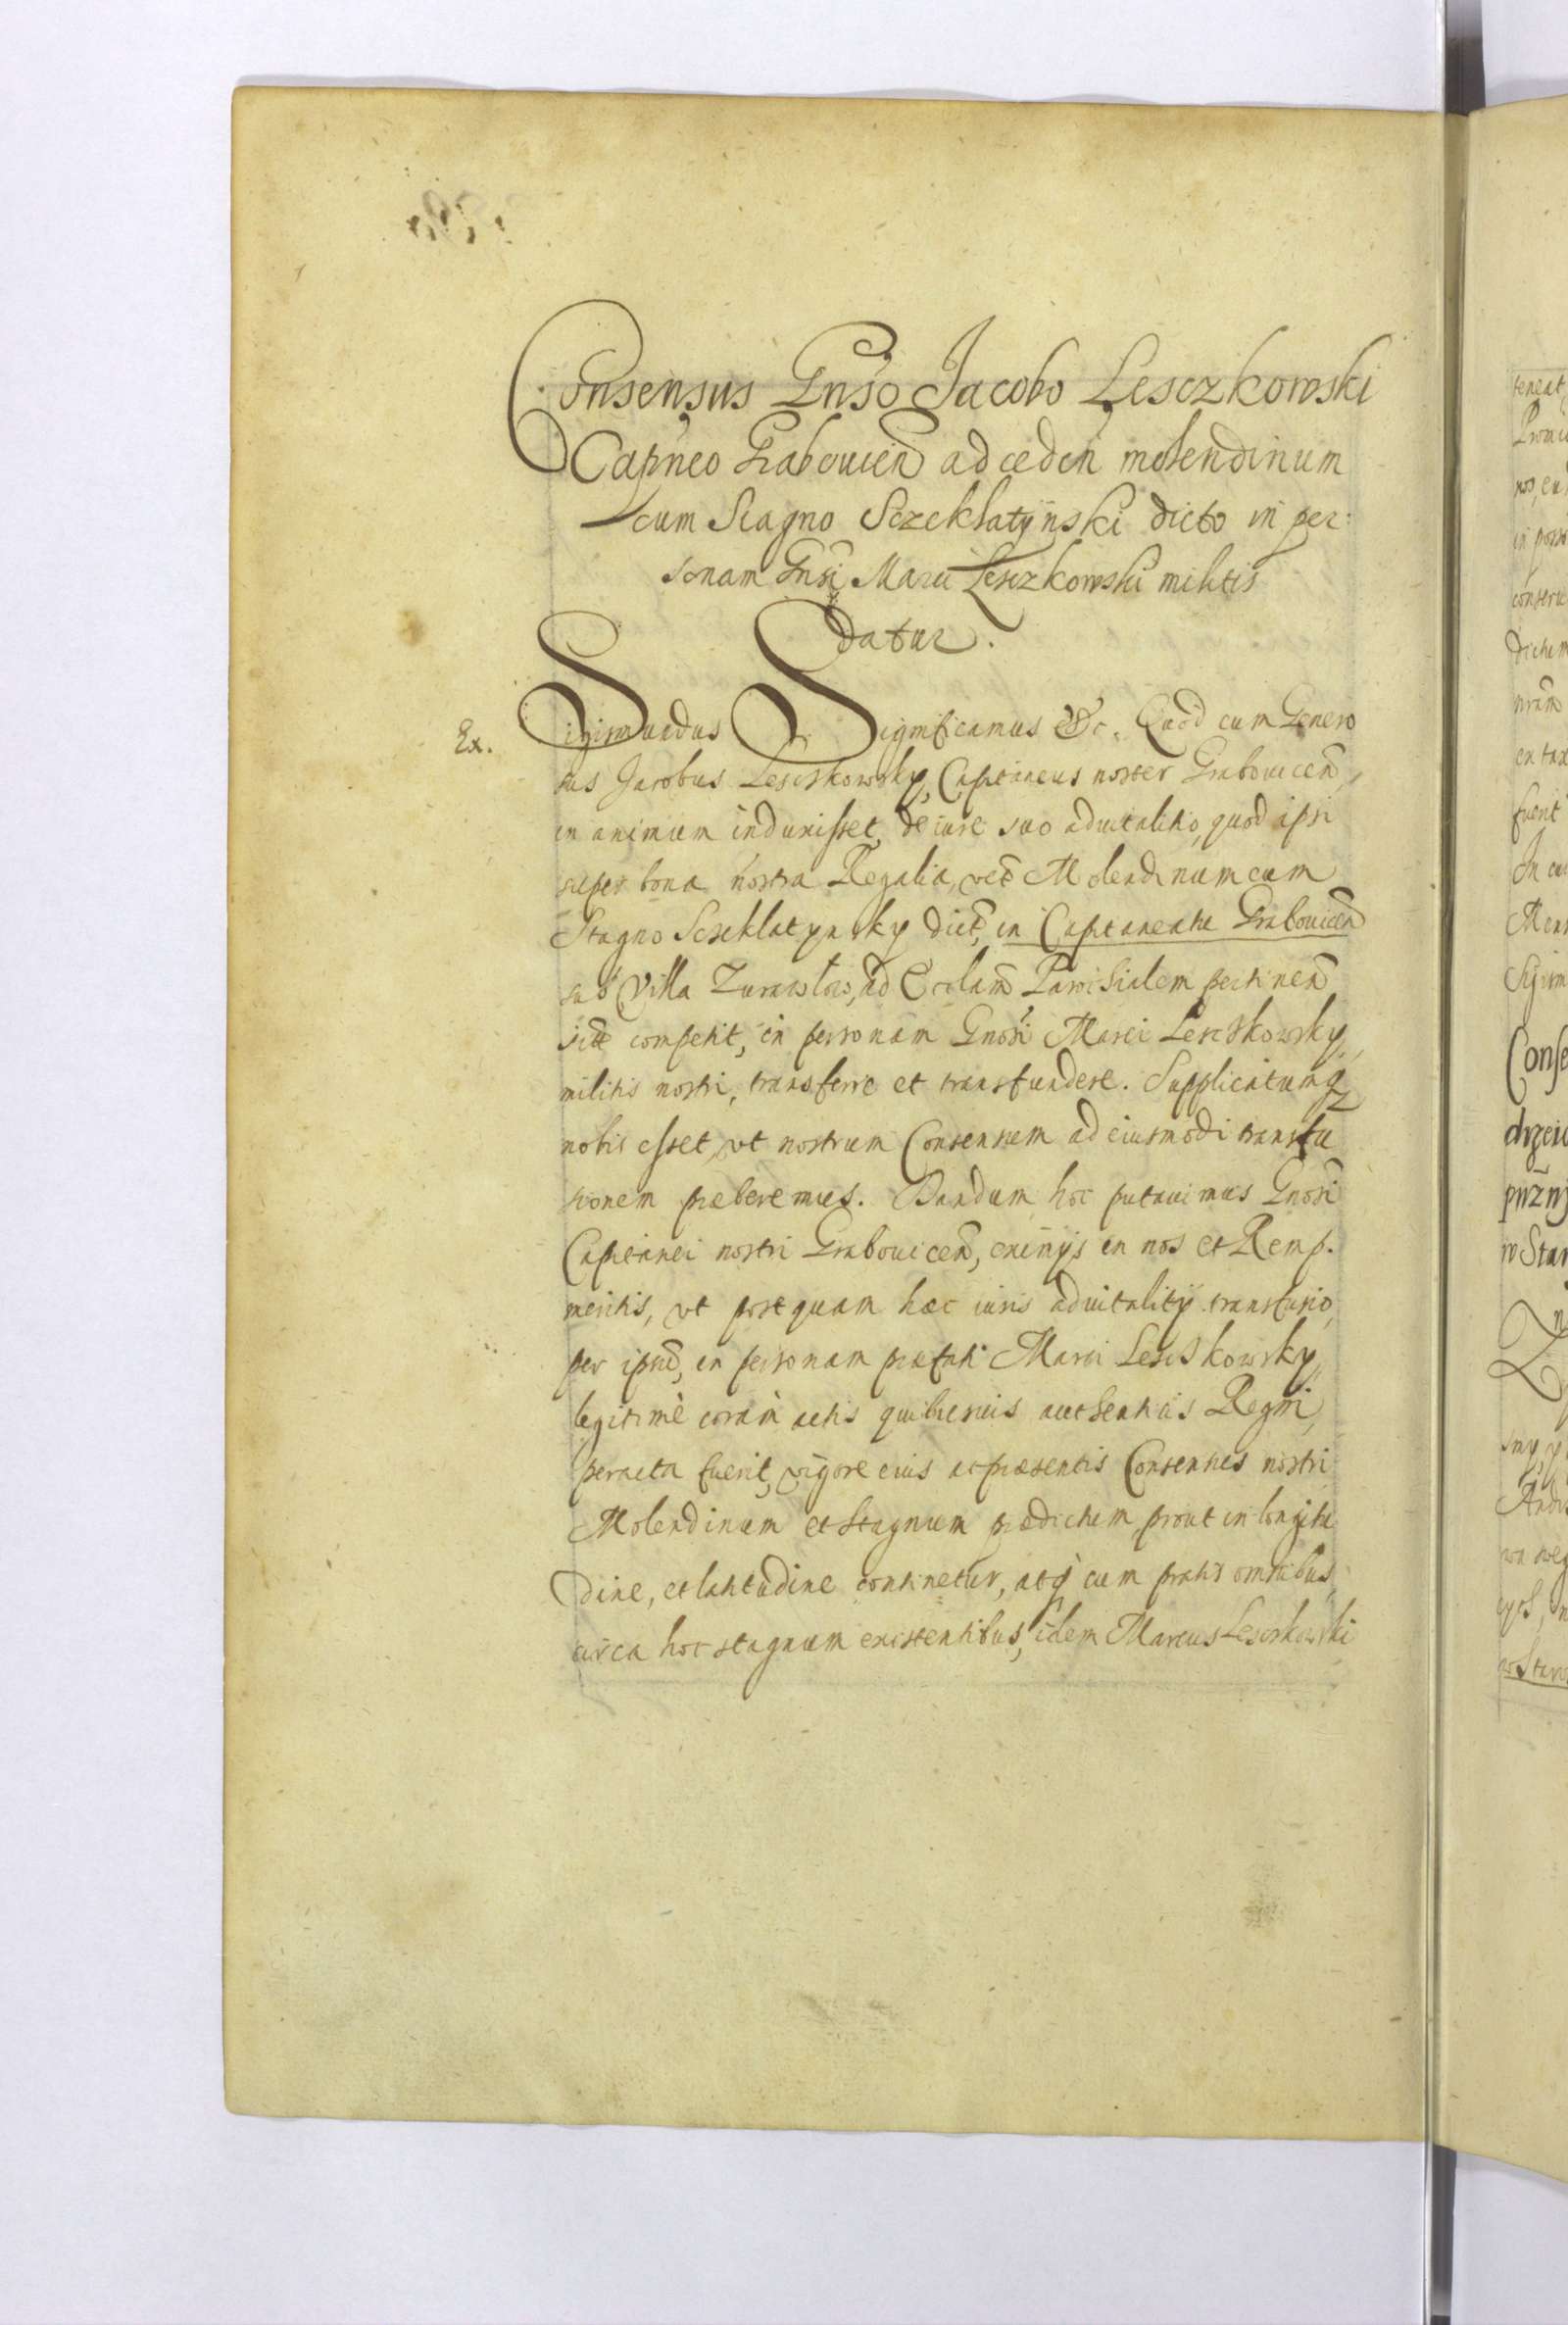 Consensus Gnso Jacobo Lesczkowski
Capneo Grabouien ad ceden molendinum
cum Stagno Sczeklatynski dicto in per:
sonam Gnsi Marci Lesczkowski militis
datur.
Ex.
Sigismundus Significamus &c. Quod cum Genero
sus Jacobus Lesczkowsky, Capitaneus noster Grabouicen,
in animum induxisset, de iure suo aduitalitio, quod ipsi
super bona nostra Regalia, vet Molendinum cum
Stagno Sczeklatynsky dict, in Capitaneatu Grabouicen
sub Villa Zurawlow, ad Ecclam Parochialem pertinen
sitt competit, in personam Gnosi Marci Lesczkowsky,
militis nostri, transferre et transfundere. Supplicatumq
nobis esset, vt nostrum Consensum ad eiusmodi transfu
sionem præberemus. Dandum hoc putauimus Gnosi
Capitanei nostri Grabouicen, eximijs in nos et Remp.
meritis, vt postquam hæc iuris aduitalitij transfusio,
per ipsum, in personam præfati Marci Lesczkowsky
legitimè coràm actis quibusuis authenticis Regni,
peracta fuerit, vigore eius ac præsentis Consensus nostri
Molendinum et Stagnum prædictum prout in longitu
dine, et latitudine continetur, atq cum pratis omnibus,
circa hoc stagnum existentibus, idem Marcus Lesczkowski
teneat
in poss
dictum
nram
fuerit
Conse
w Star